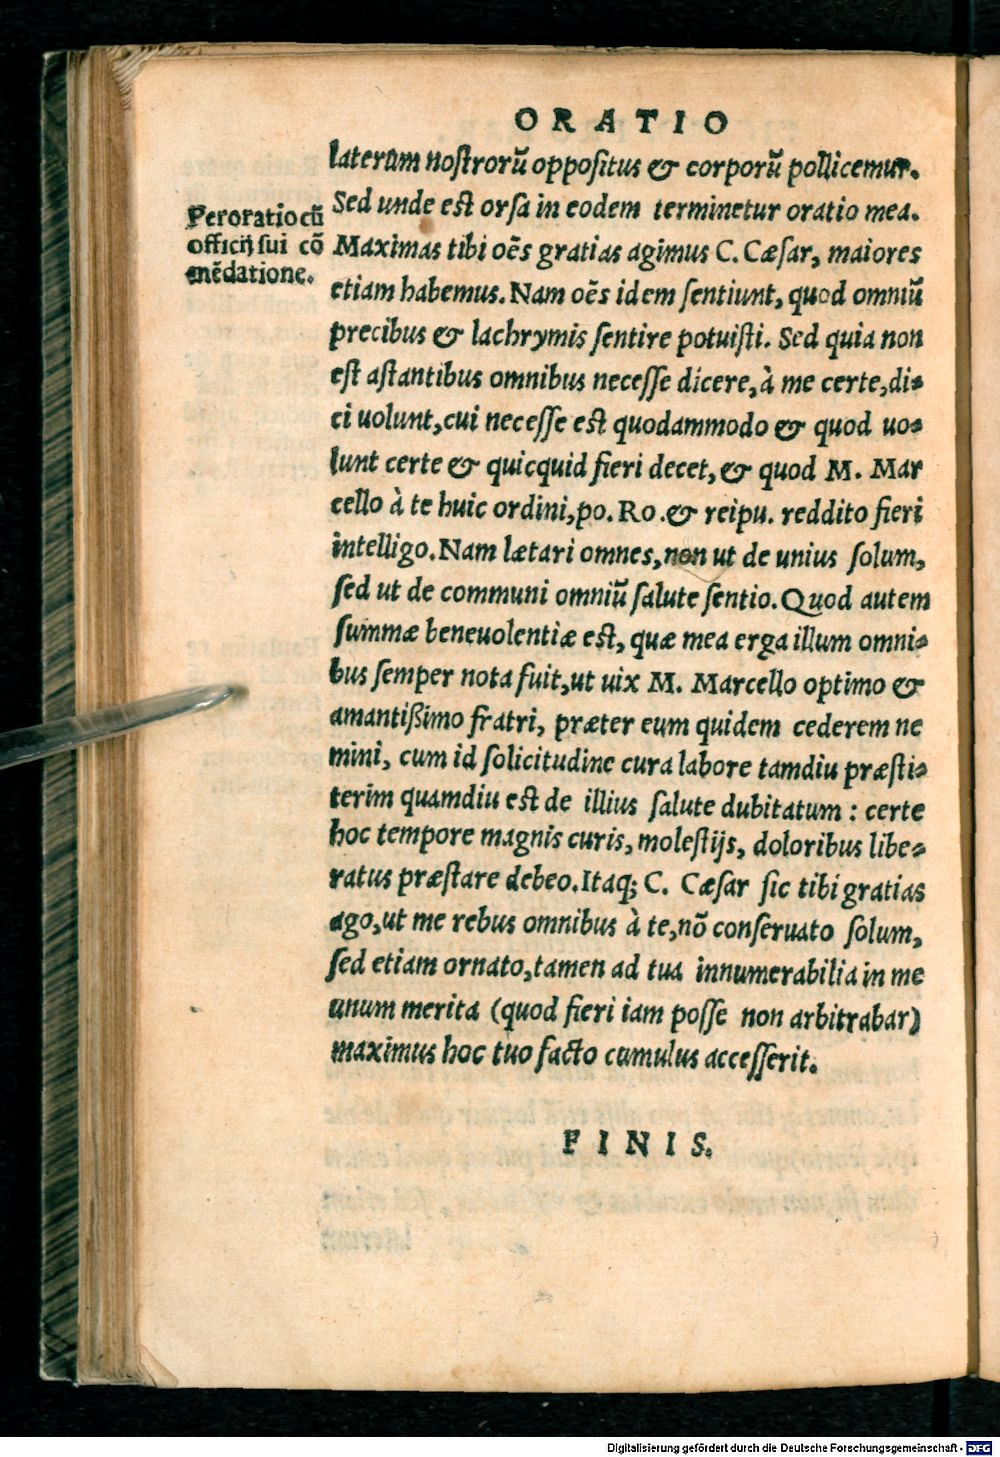 ORATIO
laterum nostrorũ oppositus & corporũ pollicemur.
Sed unde est orsa in eodem terminetur oratio mea.
Peroratio cũ
officij sui cõ
mẽdatione.
Maximas tibi oẽs gratias agimus C. Cæsar, maiores
etiam habemus. Nam oẽs idem sentiunt, quod omniũ
precibus & lachrymis sentire potuisti. Sed quia non
est astantibus omnibus necesse dicere, à me certe, di-
ci uolunt, cui necesse est quodammodo & quod uo-
lunt certe & quicquid fieri decet, & quod M. Mar
cello à te huic ordini, po. Ro. & reipu. reddito fieri
intelligo. Nam lætari omnes, non ut de unius solum,
sed ut de communi omniũ salute sentio. Quod autem
summæ beneuolentiæ est, quæ mea erga illum omni-
bus semper nota fuit, ut uix M. Marcello optimo &
amantißimo fratri, præter eum quidem cederem ne
mini, cum id solicitudine cura labore tamdiu præsti-
terim quamdiu est de illius salute dubitatum: certe
hoc tempore magnis curis, molestijs, doloribus libe-
ratus præstare debeo. Itaq; C. Cæsar sic tibi gratias
ago, ut me rebus omnibus à te, nõ conseruato solum,
sed etiam ornato, tamen ad tua innumerabilia in me
unum merita (quod fieri iam posse non arbitrabar)
maximus hoc tuo facto cumulus accesserit.
FINIS.
Digitalisierung gefördert durch die Deutsche Forschungsgemeinschaft - DFG